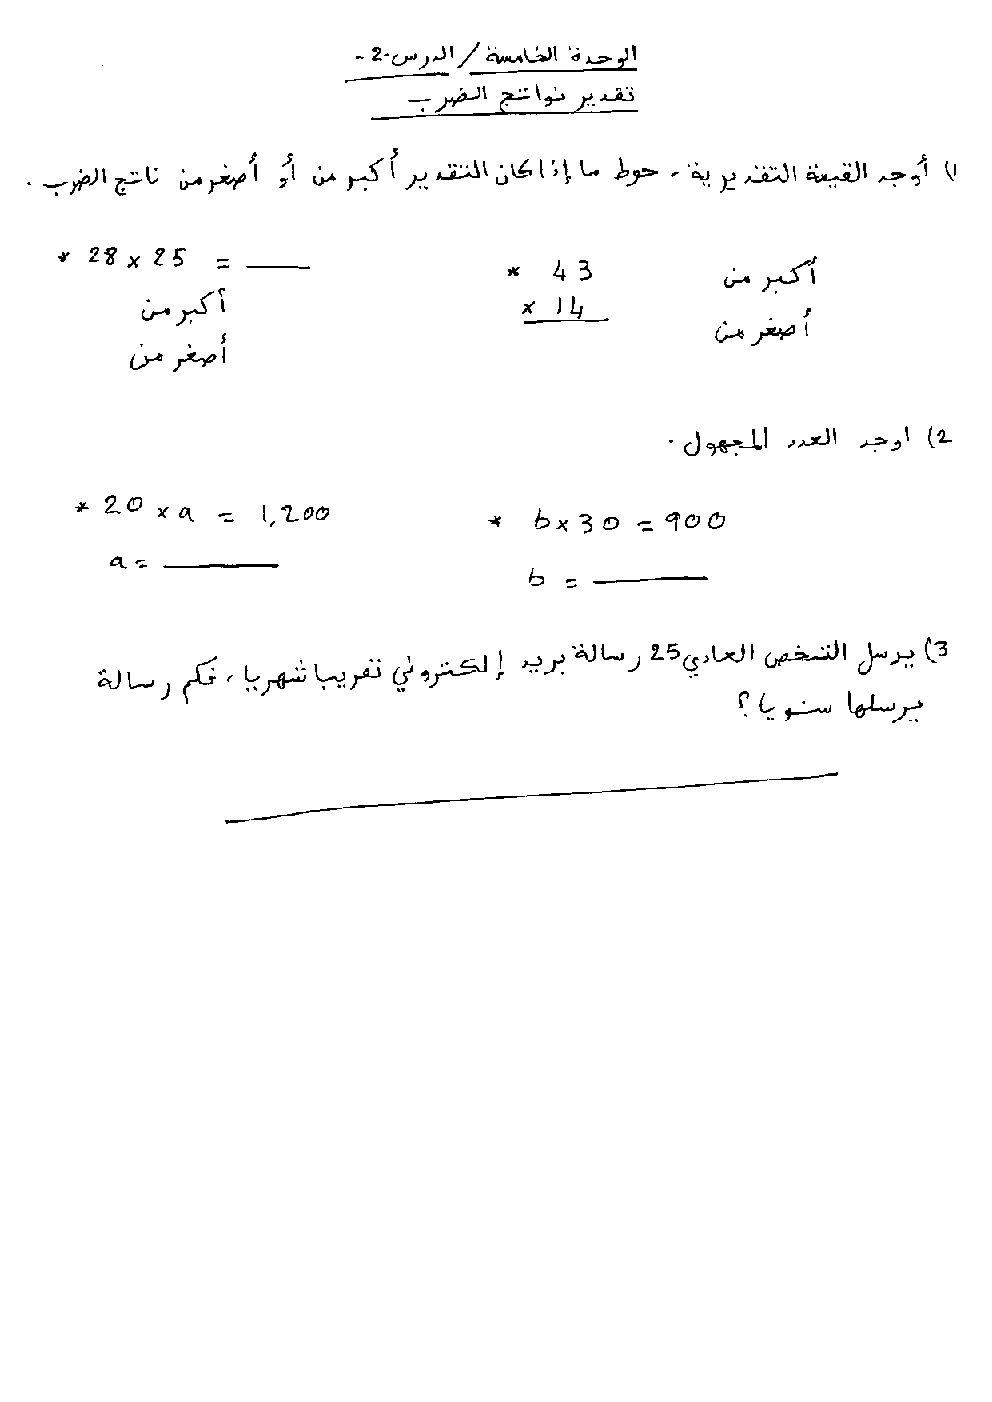 الوحدة الخامسة / الدرس -2-
تقدير نواتج الضرب
1) أوجد القيمة التقديرية . حوط ما إذا كان التقدير أكبر من أو أصغر من ناتج الضرب .
* 43
x 14
أكبر من
أصغر من
* 28 x 25 = ____
أكبر من
أصغر من
2) اوجد العدد المجهول .
* 20 x a = 1,200
a = ____
* b x 30 = 900
b = ____
3) يرسل الشخص العادي 25 رسالة بريد إلكتروني تقريبا شهريا ، فكم رسالة
يرسلها سنويا ؟